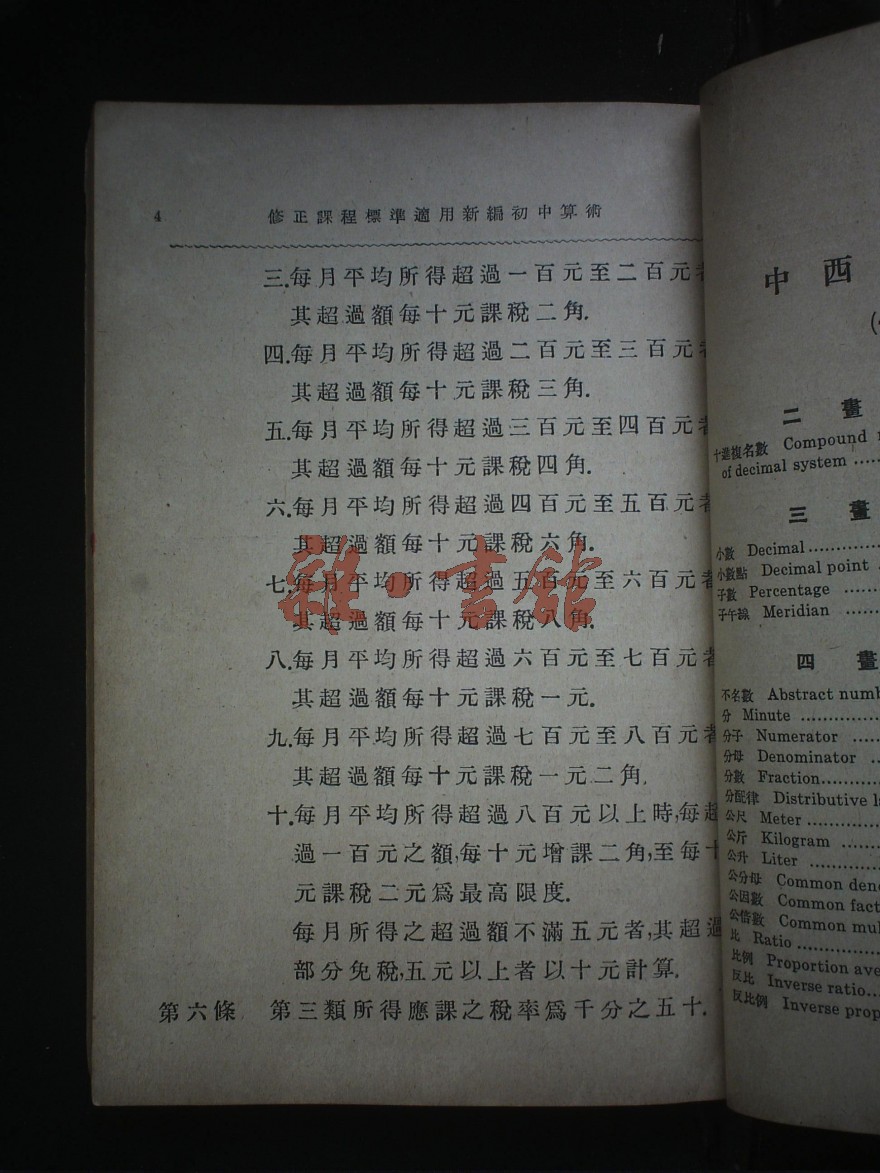 4
修正課程標準適用新編初中算術
三.每月平均所得超過一百元至二百元者
其超過額每十元課稅二角.
四.每月平均所得超過二百元至三百元者
其超過額每十元課稅三角.
五.每月平均所得超過三百元至四百元者
其超過額每十元課稅四角.
六.每月平均所得超過四百元至五百元者
其超過額每十元課稅六角.
七.每月平均所得超過五百元至六百元者
其超過額每十元課稅八角.
八.每月平均所得超過六百元至七百元者
其超過額每十元課稅一元.
九.每月平均所得超過七百元至八百元者
其超過額每十元課稅一元二角.
十.每月平均所得超過八百元以上時,每超
過一百元之額,每十元增課二角,至每十
元課稅二元爲最高限度.
每月所得之超過額不滿五元者,其超過
部分免稅,五元以上者以十元計算.
第六條 第三類所得應課之稅率爲千分之五十.
雜·書館
中西
二畫
十進複名數 Compound
of decimal system
三畫
小數 Decimal
小數點 Decimal point
子數 Percentage
子午線 Meridian
四畫
不名數 Abstract numb
分 Minute
分子 Numerator
分母 Denominator
分數 Fraction
分配律 Distributive l
公尺 Meter
公斤 Kilogram
公升 Liter
公分母 Common deno
公因數 Common fact
公倍數 Common mul
比 Ratio
比例 Proportion ave
反比 Inverse ratio
反比例 Inverse prop